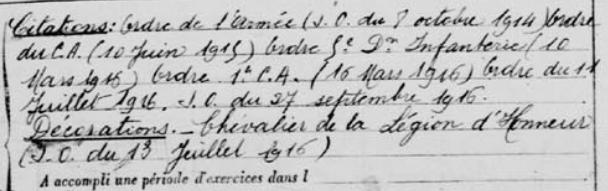 Citations: Ordre de l'Armée (J.O. du 7 octobre 1914) Ordre
du C.A. (10 Juin 1915) Ordre 5e Don Infanterie (10
Mars 1916) Ordre 1er C.A. (16 Mars 1916) Ordre du 11
Juillet 1916. J.O. du 27 septembre 1916.
Décorations. _ Chevalier de la Légion d'Honneur
(J.O. du 13 Juillet 1916)
A accompli une période d'exercices dans l